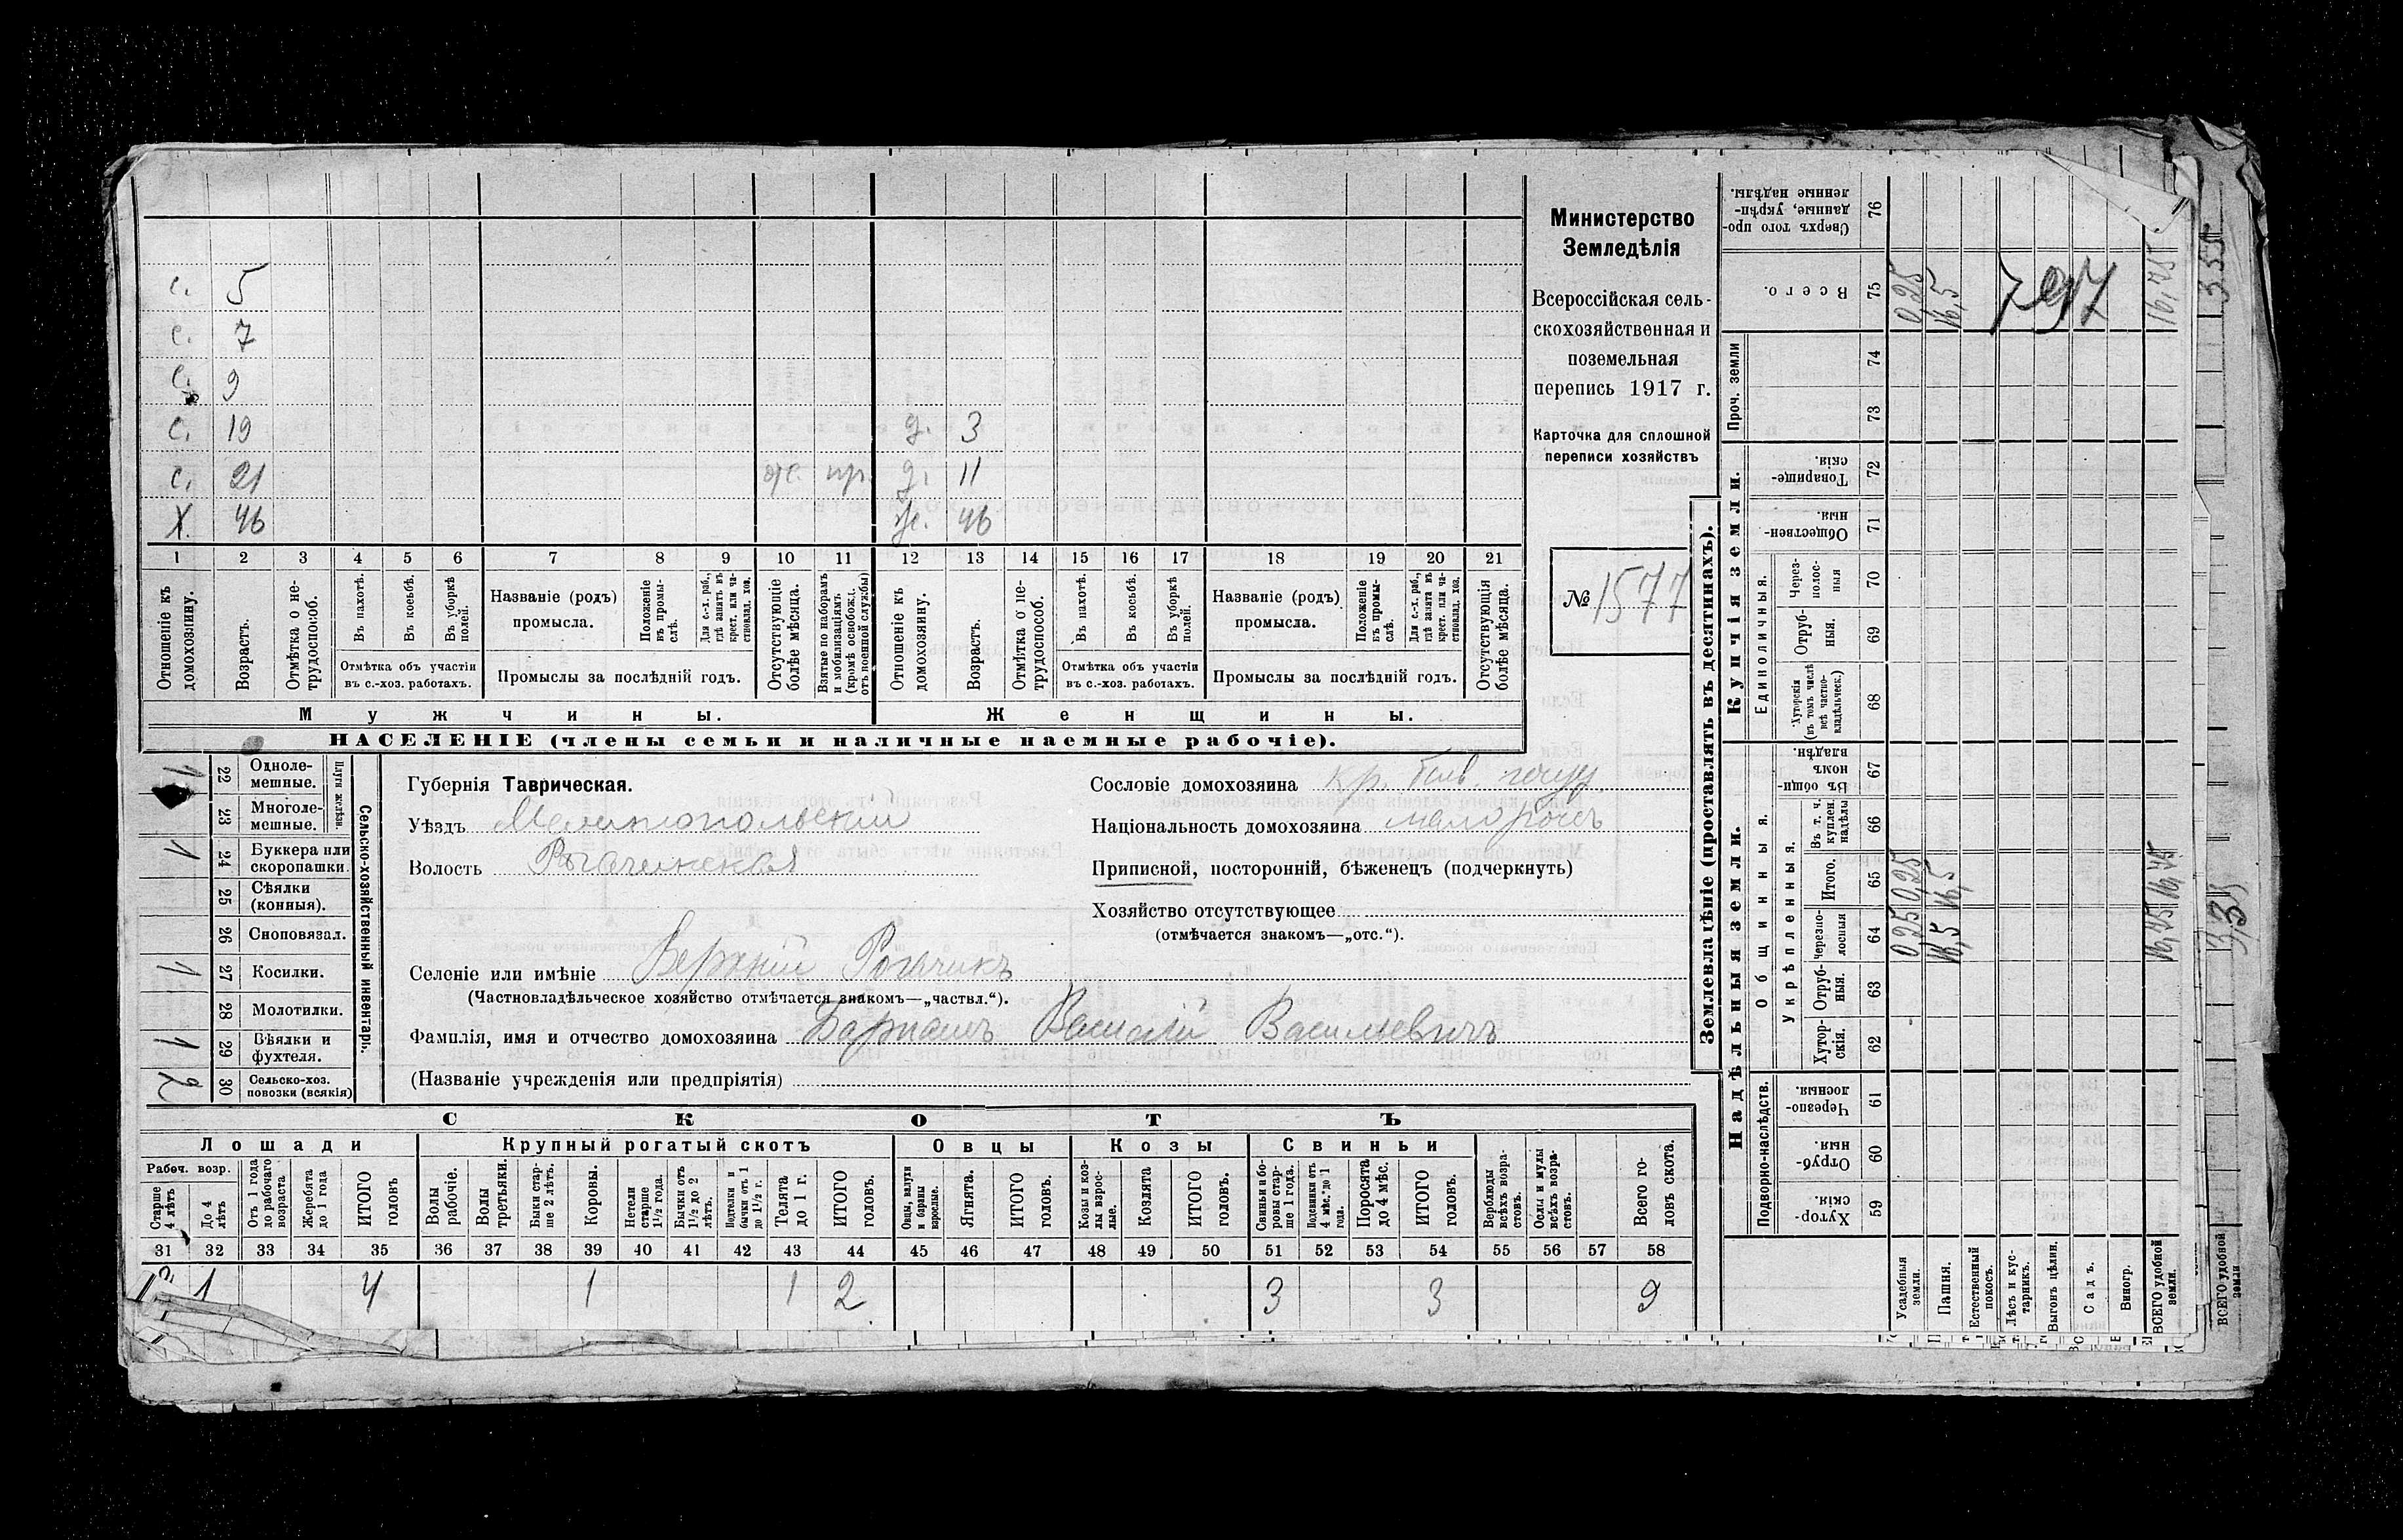 с. 5
с. 7
с. 9
с. 19 д. 3
с. 21 ж. пр. д. 11
Х. 46 ж. 46
1 2 3 4 5 6 7 8 9 10 11 12 13 14 15 16 17 18 19 20 21
Отношеніе къ домохозяину.
Возрастъ.
Отмѣтка о нетрудоспособ.
Въ пахотѣ.
Въ косьбѣ.
Въ уборкѣ полей.
Отмѣтка объ участіи
въ с.-хоз. работахъ.
Названіе (родъ)
промысла.
Положеніе въ промыслѣ.
Для с.-х. раб., гдѣ занятъ въ крест. или частновлад. хоз.
Промыслы за послѣдній годъ.
Отсутствующіе болѣе мѣсяца.
Взятые по наборамъ и мобилизаціямъ (кромѣ освобожд. отъ военной службы)
Отношеніе къ домохозяину.
Возрастъ.
Отмѣтка о нетрудоспособ.
Въ пахотѣ.
Въ косьбѣ.
Въ уборкѣ полей.
Отмѣтка объ участіи
въ с.-хоз. работахъ.
Названіе (родъ)
промысла.
Положеніе въ промыслѣ.
Для с.-х. раб., гдѣ занята въ крест. или частновлад. хоз.
Промыслы за послѣдній годъ.
Отсутствующія болѣе мѣсяца.
Мужчины. Женщины.
НАСЕЛЕНІЕ (члены семьи и наличные наемные рабочіе).
Министерство
Земледѣлія
Всероссійская сель-
скохозяйственная и
поземельная
перепись 1917 г.
Карточка для сплошной
переписи хозяйствъ
№ 1577
Сельско-хозяйственный инвентарь.
Плуги желѣзн.
1 22 Однолемешные.
23 Многолемешные.
1 24 Буккера или скоропашки.
25 Сѣялки (конныя).
26 Сноповязал.
1 27 Косилки.
28 Молотилки.
1 29 Вѣялки и фухтеля.
2 30 Сельско-хоз. повозки (всякія)
Губернія Таврическая.
Уѣздъ Мелитопольскій
Волость Рогачикская
Селеніе или имѣніе Верхній Рогачикъ
(Частновладѣльческое хозяйство отмѣчается знакомъ—„частвл.“).
Фамилія, имя и отчество домохозяина Василій Васильевичъ
(Названіе учрежденія или предпріятія)
Сословіе домохозяина кр. быв. госуд.
Національность домохозяина малороссъ
Приписной, посторонній, бѣженецъ (подчеркнуть)
Хозяйство отсутствующее
(отмѣчается знакомъ—„отс.“).
СКОТЪ
Лошади Крупный рогатый скотъ Овцы Козы Свиньи
Рабоч. возр.
Старше 4 лѣтъ
До 4 лѣтъ
Отъ 1 года до рабочаго возраста
Жеребята до 1 года
ИТОГО головъ
Волы рабочіе.
Волы третьяки.
Быки старше 2 лѣтъ.
Коровы.
Нетели старше 1½ года.
Бычки отъ 1½ до 2 лѣтъ.
Подтелки и бычки отъ 1 до 1½ г.
Телята до 1 г.
ИТОГО головъ.
Овцы, валухи и бараны взрослые.
Ягнята.
ИТОГО головъ.
Козы и козлы взрослые.
Козлята
ИТОГО головъ.
Свиньи и боровы старше 1 года.
Подсвинки отъ 4 мѣс. до 1 года.
Поросята до 4 мѣс.
ИТОГО головъ.
Верблюды всѣхъ возрастовъ.
Ослы и мулы всѣхъ возрастовъ.
Всего головъ скота.
31 32 33 34 35 36 37 38 39 40 41 42 43 44 45 46 47 48 49 50 51 52 53 54 55 56 57 58
1 4 1 1 2 3 3 9
Землевладѣніе (проставлять въ десятинахъ).
Надѣльныя земли. Купчія земли.
Подворно-наслѣдств.
Общинныя.
Укрѣпленныя.
Единоличныя.
Проч. земли
Хуторскія. 59
Отрубныя. 60
Черезполосныя. 61
Хуторскія. 62
Отрубныя. 63
Черезполосныя 64
Итого. 65
Въ т. ч. куплен. надѣлы 66
Въ общиномъ владѣн. 67
Хуторскія (въ томъ числѣ всѣ частновладѣльческ.) 68
Отрубныя. 69
Черезполосныя 70
Общественныя. 71
Товарищескія. 72
73
74
Всего. 75
Сверхъ того проданные, укрѣпленные надѣлы. 76
Усадебныя земли. 0,25 0,25 0,25
Пашня. 16,5 16,5 16,5
Естественный покосъ.
Лѣсъ и кустарникъ.
Выгонъ цѣлин.
Садъ.
Виногр.
ВСЕГО удобной земли. 16,75 16,75 16,75
797
ВСЕГО удобной земли